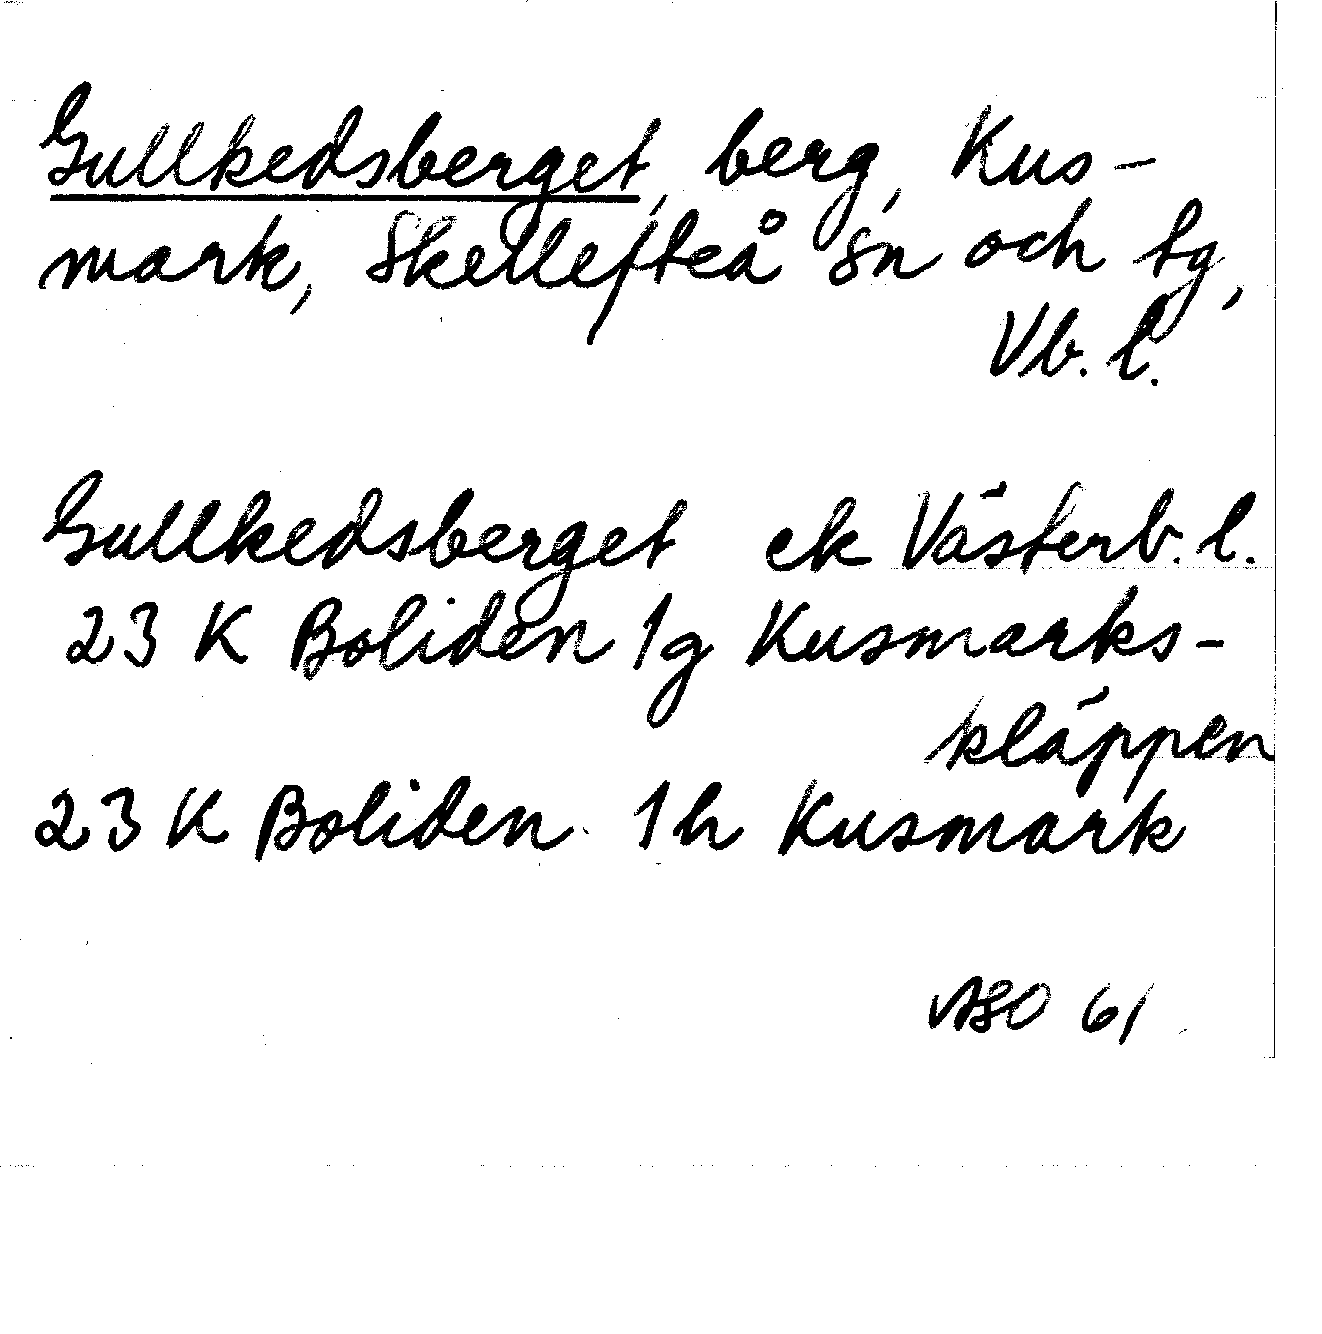 Gullkedsberget, berg, Kus-
mark, Skellefteå sn och tg,
Vb. l.
Gullkedsberget ek Västerb. l.
23 K Boliden 1g Kusmarks-
kläppen
23 K Boliden 1h Kusmark
ASO 61